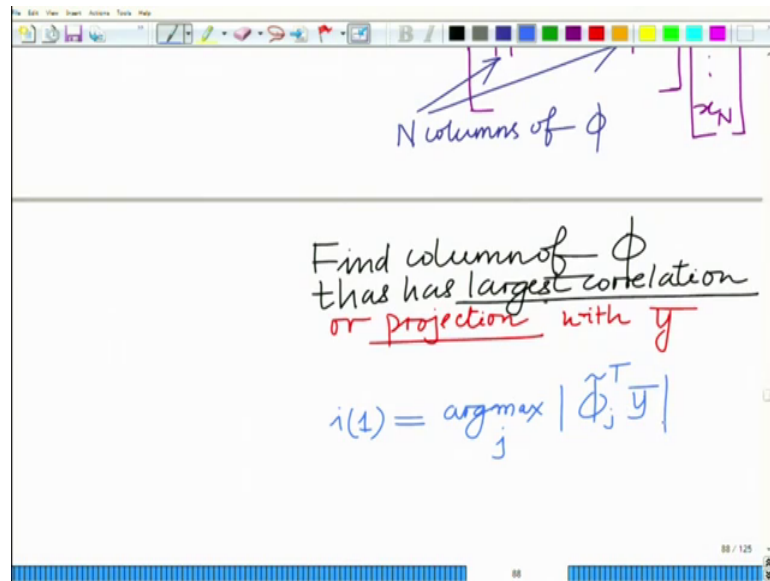 File Edit View Insert Actions Tools Help
B I
⋮
x_N
N columns of Φ
Find column of Φ
thas has largest correlation
or projection with y̅
i(1) = argmax_j | Φ̃_j^T y̅ |
88 / 125
88